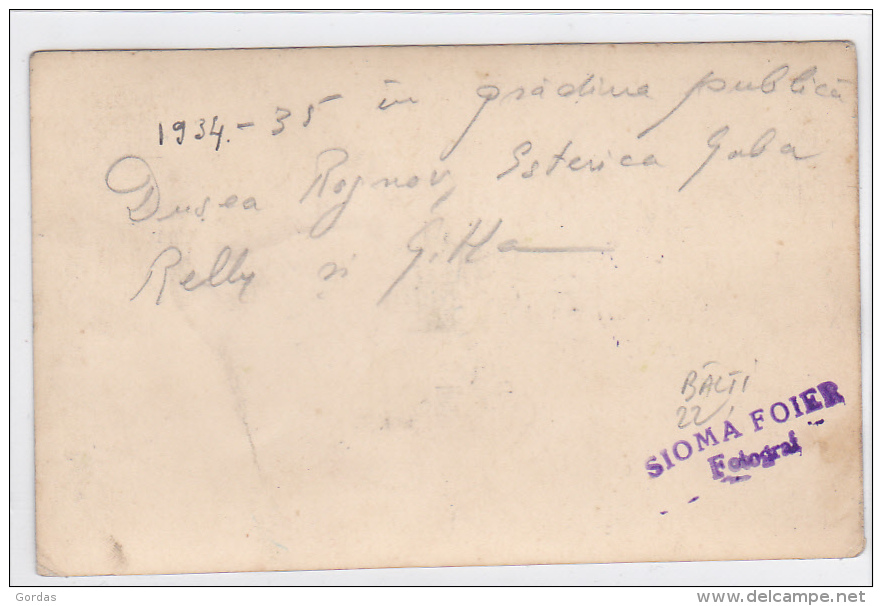 1934.-35 în grădina publică
Dușea Rojnov, Esterica Gaba
Relly și Gitta
BĂLȚI
22,
SIOMA FOIER
Fotograf
Gordas
www.delcampe.net